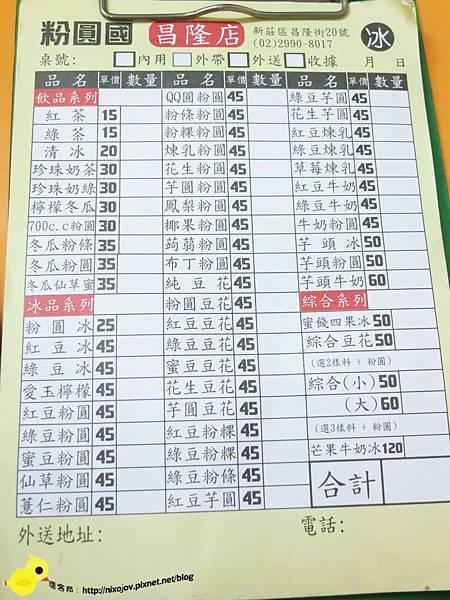 粉圓國 昌隆店 新莊區昌隆街20號
(02)2990-8017 冰
桌號: 內用 外帶 外送 收據 月 日
品名 單價 數量
飲品系列
紅茶 15
綠茶 15
清冰 20
珍珠奶茶 30
珍珠奶綠 30
檸檬冬瓜 30
700c.c粉圓 30
冬瓜粉條 35
冬瓜粉圓 35
冬瓜仙草蜜 35
冰品系列
粉圓冰 25
紅豆冰 45
綠豆冰 45
愛玉檸檬 45
紅豆粉圓 45
綠豆粉圓 45
蜜豆粉圓 45
仙草粉圓 45
薏仁粉圓 45
品名 單價 數量
QQ圓粉圓 45
粉條粉圓 45
粉粿粉圓 45
煉乳粉圓 45
花生粉圓 45
芋圓粉圓 45
鳳梨粉圓 45
椰果粉圓 45
蒟蒻粉圓 45
布丁粉圓 45
純豆花 45
粉圓豆花 45
紅豆豆花 45
綠豆豆花 45
蜜豆豆花 45
花生豆花 45
芋圓豆花 45
紅豆粉粿 45
綠豆粉粿 45
綠豆粉條 45
紅豆芋圓 45
品名 單價 數量
綠豆芋圓 45
花生芋圓 45
紅豆煉乳 45
綠豆煉乳 45
草莓煉乳 45
紅豆牛奶 45
綠豆牛奶 45
牛奶粉圓 45
芋頭冰 50
芋頭粉圓 50
芋頭牛奶 60
綜合系列
蜜餞四果冰 50
綜合豆花 50
(選2樣料 + 粉圓)
綜合(小) 50
(大) 60
(選3樣料 + 粉圓)
芒果牛奶冰 120
合計
外送地址: 電話:
痞客邦：http://nixojov.pixnet.net/blog